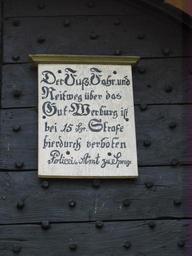 Der Fuß, Fahr, und
Reitweg über das
Gut Werburg ist
bei 15 Gr. Strafe
hierdurch verboten
Polizei Amt zu Spenge